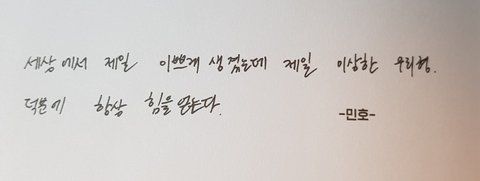 세상에서 제일 이쁘게 생겼는데 제일 이상한 우리형.
덕분에 항상 힘을 얻는다.
-민호-